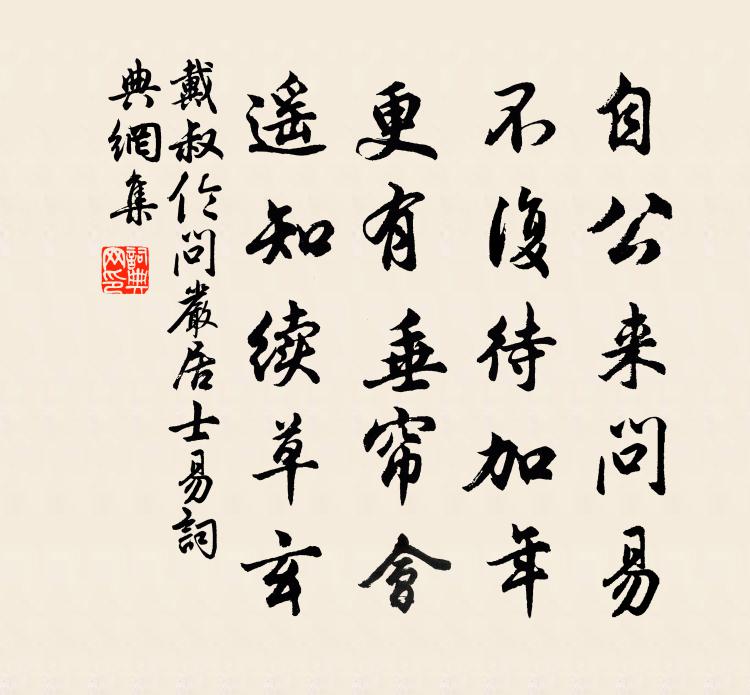 自公来問易
不復待加年
更有垂帘會
遥知续草玄
戴叔伦問嚴居士易詞
典網集
詞典
网印